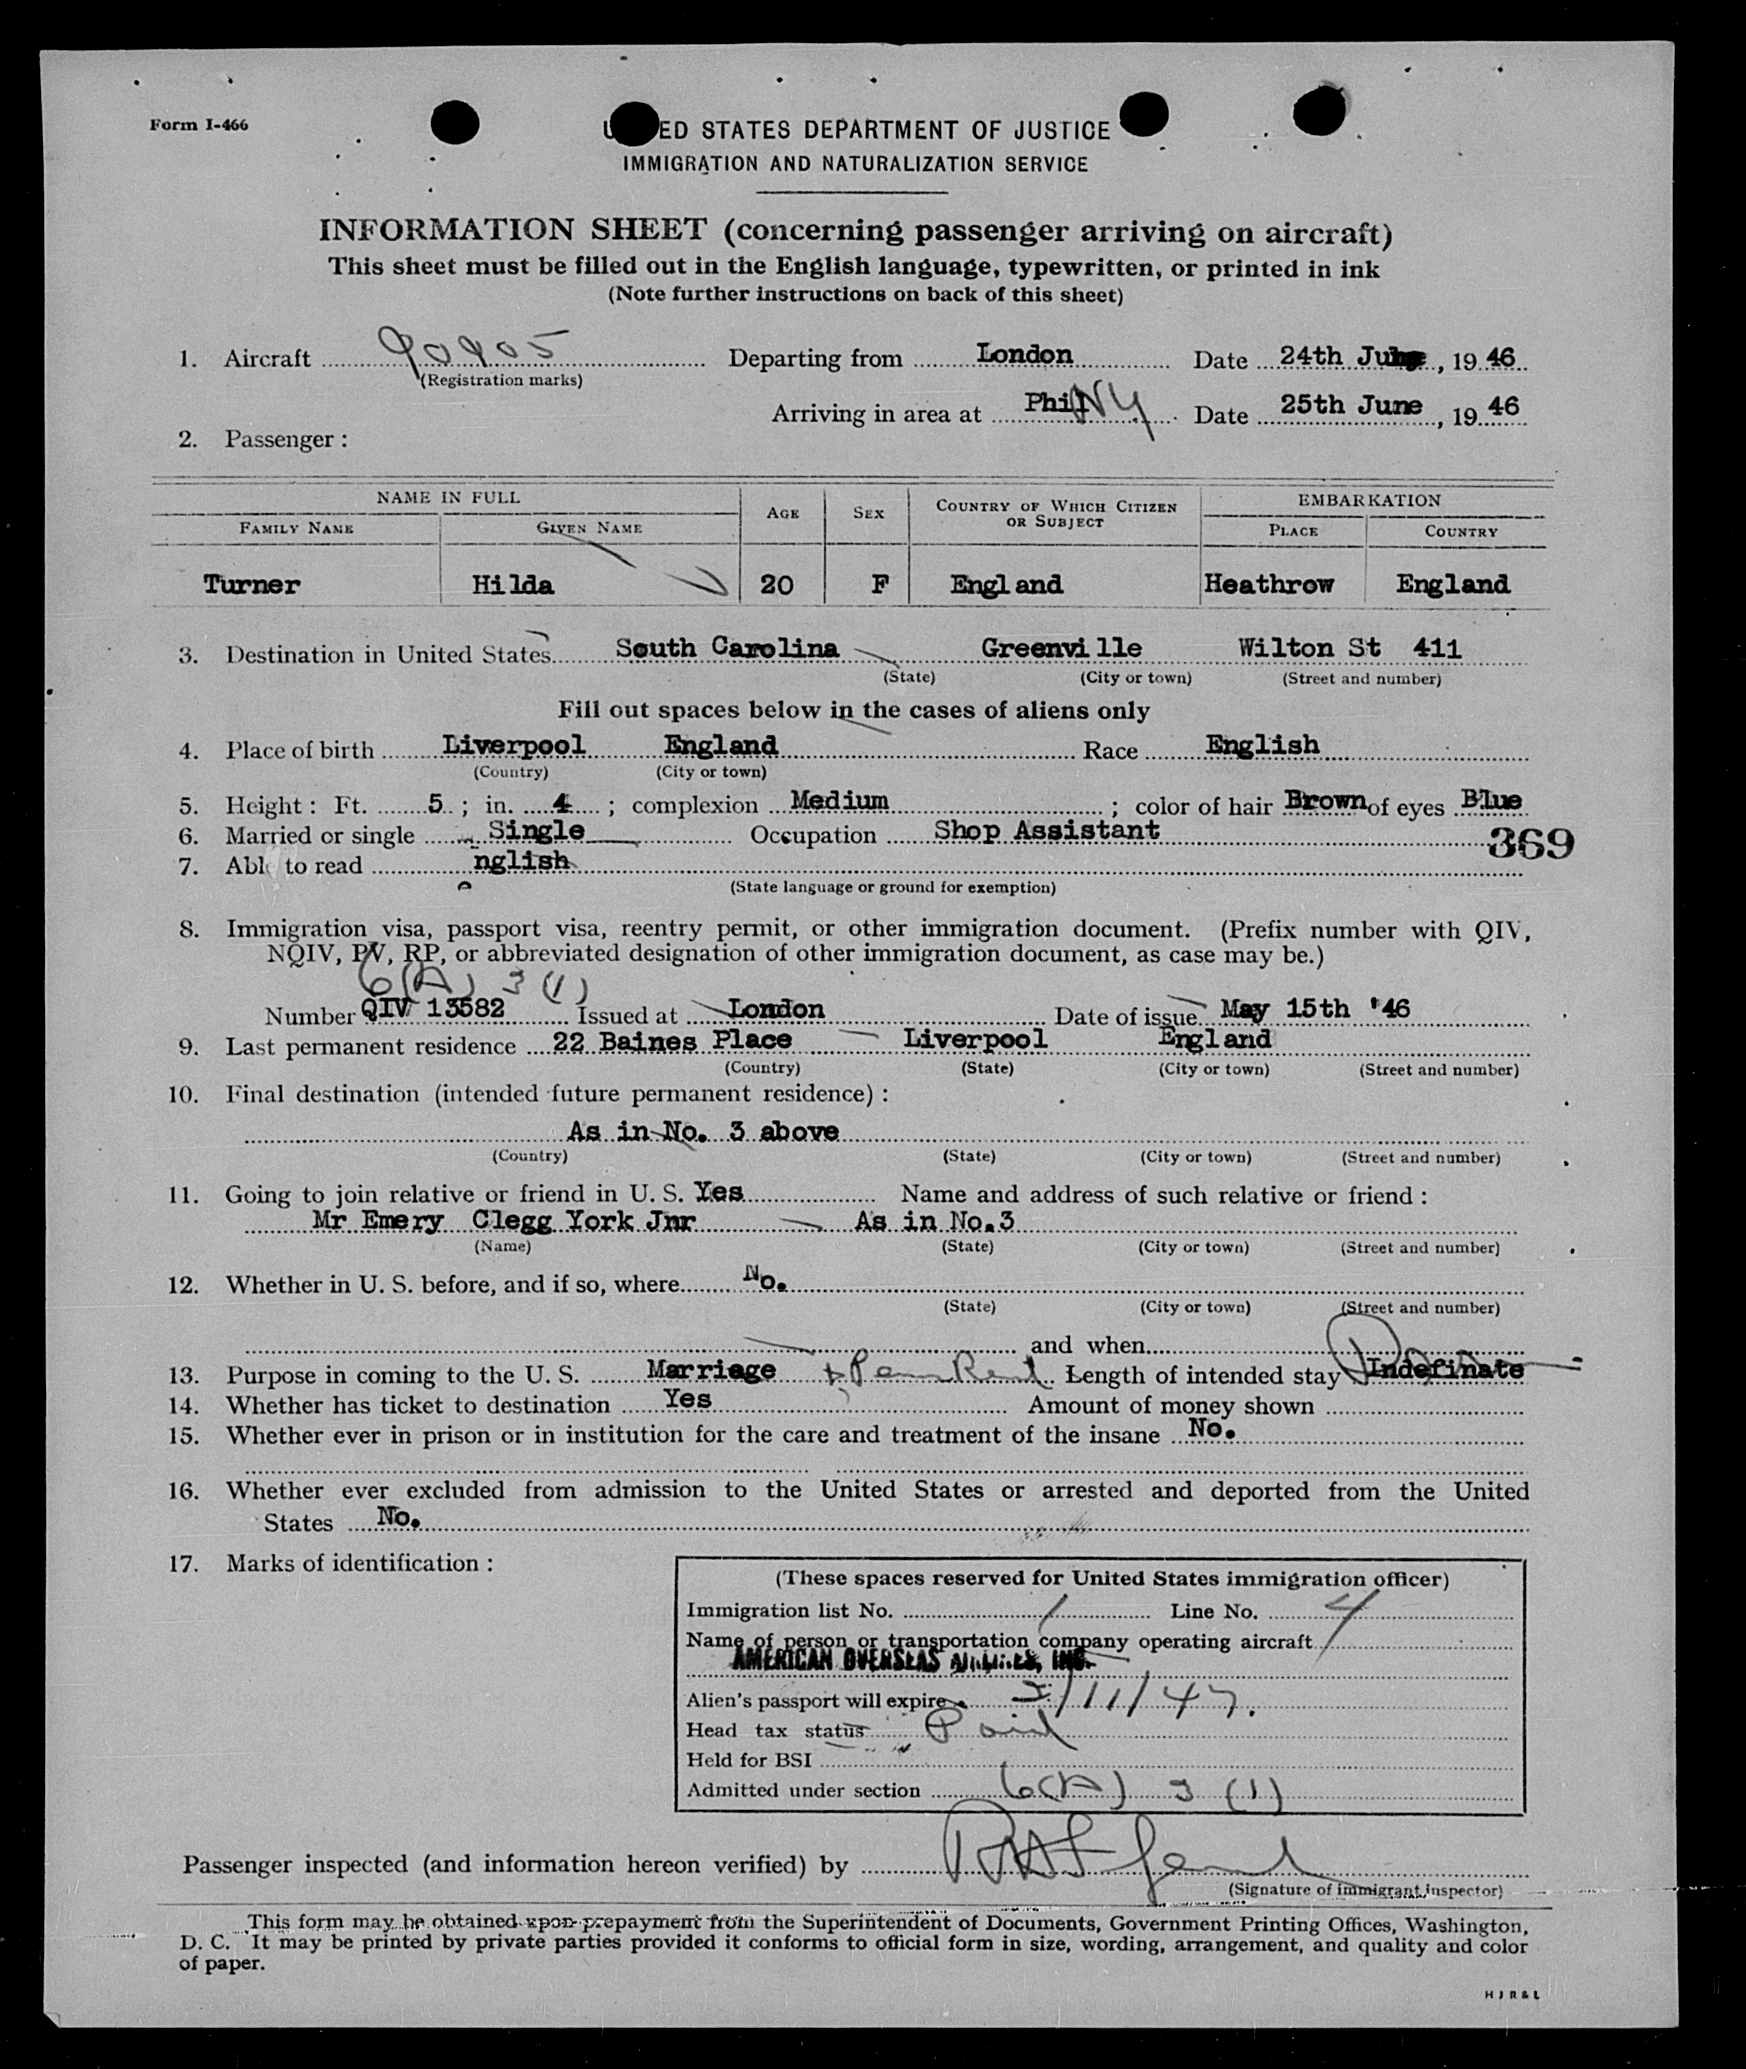 Form I-466
UNITED STATES DEPARTMENT OF JUSTICE
IMMIGRATION AND NATURALIZATION SERVICE
INFORMATION SHEET (concerning passenger arriving on aircraft)
This sheet must be filled out in the English language, typewritten, or printed in ink
(Note further instructions on back of this sheet)
1. Aircraft 90905 Departing from London Date 24th June, 1946
(Registration marks)
Arriving in area at Phil NY Date 25th June, 1946
2. Passenger:
NAME IN FULL AGE SEX COUNTRY OF WHICH CITIZEN OR SUBJECT EMBARKATION
FAMILY NAME GIVEN NAME PLACE COUNTRY
Turner Hilda 20 F England Heathrow England
3. Destination in United States South Carolina Greenville Wilton St 411
(State) (City or town) (Street and number)
Fill out spaces below in the cases of aliens only
4. Place of birth Liverpool England Race English
(Country) (City or town)
5. Height: Ft. 5; in. 4; complexion Medium; color of hair Brown of eyes Blue
6. Married or single Single Occupation Shop Assistant
369
7. Able to read english
(State language or ground for exemption)
8. Immigration visa, passport visa, reentry permit, or other immigration document. (Prefix number with QIV,
NQIV, PV, RP, or abbreviated designation of other immigration document, as case may be.)
6(A) 3 (1)
Number QIV 13582 Issued at London Date of issue May 15th '46
9. Last permanent residence 22 Baines Place Liverpool England
(Country) (State) (City or town) (Street and number)
10. Final destination (intended future permanent residence):
As in No. 3 above
(Country) (State) (City or town) (Street and number)
11. Going to join relative or friend in U. S. Yes Name and address of such relative or friend:
Mr Emery Clegg York Jnr As in No.3
(Name) (State) (City or town) (Street and number)
12. Whether in U. S. before, and if so, where No.
(State) (City or town) (Street and number)
and when
13. Purpose in coming to the U. S. Marriage + Perm Resid Length of intended stay Indefinate
14. Whether has ticket to destination Yes Amount of money shown
15. Whether ever in prison or in institution for the care and treatment of the insane No.
16. Whether ever excluded from admission to the United States or arrested and deported from the United
States No.
17. Marks of identification:
(These spaces reserved for United States immigration officer)
Immigration list No. 1 Line No. 4
Name of person or transportation company operating aircraft
AMERICAN OVERSEAS AIRLINES, INC.
Alien's passport will expire 3/11/47.
Head tax status Paid
Held for BSI
Admitted under section 6(A) 3 (1)
Passenger inspected (and information hereon verified) by
(Signature of immigrant inspector)
This form may be obtained upon prepayment from the Superintendent of Documents, Government Printing Offices, Washington,
D. C. It may be printed by private parties provided it conforms to official form in size, wording, arrangement, and quality and color
of paper.
H J R & L